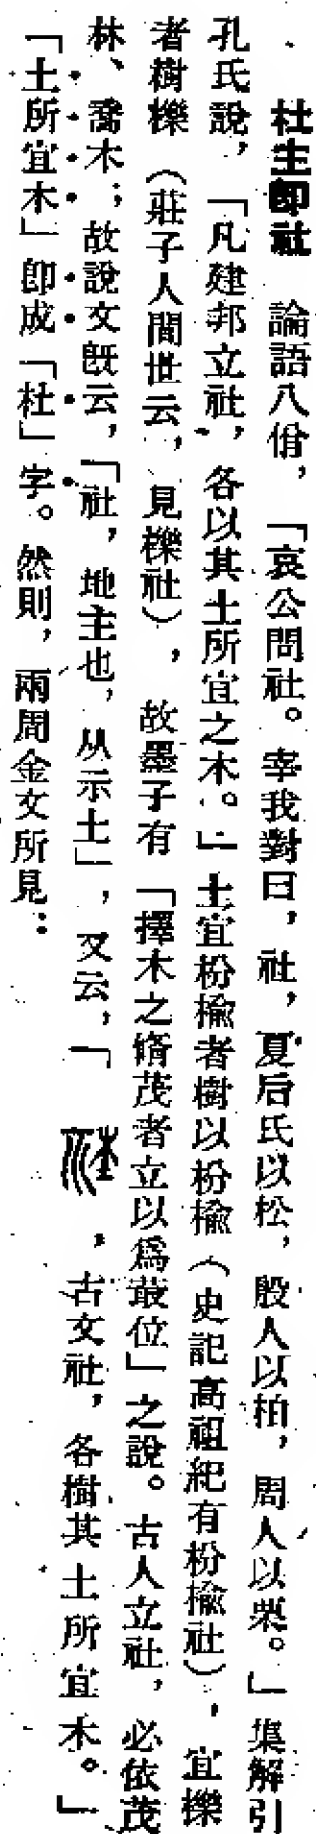 杜主卽社　論語八佾，「哀公問社。宰我對曰，社，夏后氏以松，殷人以柏，周人以栗。」集解引
孔氏說，「凡建邦立社，各以其土所宜之木。」土宜枌楡者樹以枌楡（史記高祖紀有枌楡社），宜櫟
者樹櫟（莊子人間世云，見櫟社），故墨子有「擇木之脩茂者立以爲菆位」之說。古人立社，必依茂
林、喬木；故說文旣云，「社，地主也，从示土」，又云，「　，古文社，各樹其土所宜木。」
「土所宜木」卽成「杜」字。然則，兩周金文所見：